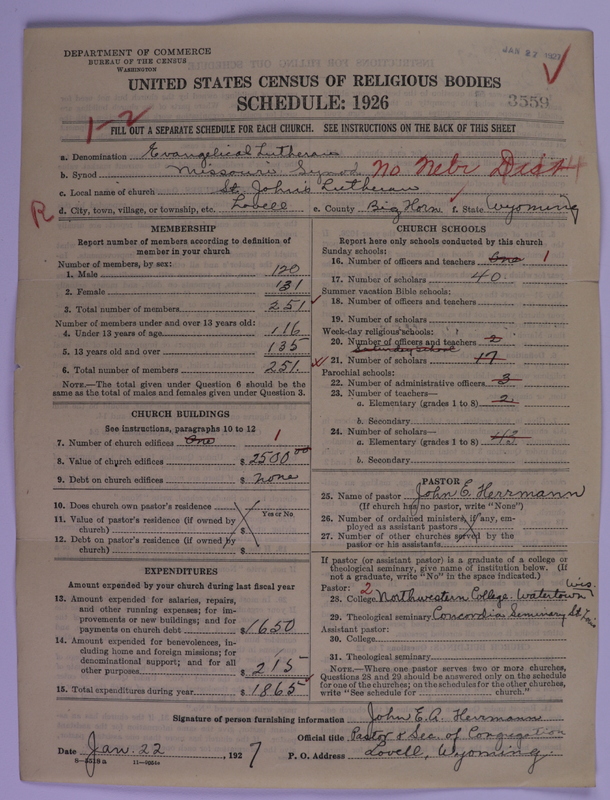 DEPARTMENT OF COMMERCE
BUREAU OF THE CENSUS
WASHINGTON
JAN 27 1927
UNITED STATES CENSUS OF RELIGIOUS BODIES
SCHEDULE: 1926
3559
1-2
FILL OUT A SEPARATE SCHEDULE FOR EACH CHURCH. SEE INSTRUCTIONS ON THE BACK OF THIS SHEET
a. Denomination Evangelical Lutheran
b. Synod Missouri Synod No. Nebr Dist
c. Local name of church St. John's Lutheran
R d. City, town, village, or township, etc. Lovell e. County Big Horn f. State Wyoming
MEMBERSHIP
Report number of members according to definition of
member in your church
Number of members, by sex:
1. Male 120
2. Female 131
3. Total number of members 251
Number of members under and over 13 years old:
4. Under 13 years of age 116
5. 13 years old and over 135
6. Total number of members 251.
NOTE.—The total given under Question 6 should be the
same as the total of males and females given under Question 3.
CHURCH BUILDINGS
See instructions, paragraphs 10 to 12
7. Number of church edifices One 1
8. Value of church edifices $ 2500 00
9. Debt on church edifices $ none
10. Does church own pastor's residence
Yes or No
11. Value of pastor's residence (if owned by
church) $
12. Debt on pastor's residence (if owned by
church) $
EXPENDITURES
Amount expended by your church during last fiscal year
13. Amount expended for salaries, repairs,
and other running expenses; for im-
provements or new buildings; and for
payments on church debt $ 1650
14. Amount expended for benevolences, in-
cluding home and foreign missions; for
denominational support; and for all
other purposes $ 215
15. Total expenditures during year $ 1865
CHURCH SCHOOLS
Report here only schools conducted by this church
Sunday schools:
16. Number of officers and teachers One 1
17. Number of scholars 40
Summer vacation Bible schools:
18. Number of officers and teachers
19. Number of scholars
Week-day religious schools:
20. Number of officers and teachers 2
Saturday school
21. Number of scholars 17
Parochial schools:
22. Number of administrative officers 3
23. Number of teachers—
a. Elementary (grades 1 to 8) 2
b. Secondary
24. Number of scholars—
a. Elementary (grades 1 to 8) 43
b. Secondary
PASTOR
25. Name of pastor John E. Herrmann
(If church has no pastor, write "None")
26. Number of ordained ministers, if any, em-
ployed as assistant pastors
27. Number of other churches served by the
pastor or his assistants
If pastor (or assistant pastor) is a graduate of a college or
theological seminary, give name of institution below. (If
not a graduate, write "No" in the space indicated.)
Pastor: 2 Wis.
28. College Northwestern College. Watertown
29. Theological seminary Concordia Seminary St. Louis
Assistant pastor:
30. College
31. Theological seminary
NOTE.—Where one pastor serves two or more churches,
Questions 28 and 29 should be answered only on the schedule
for one of the churches; on the schedules for the other churches,
write "See schedule for church."
Signature of person furnishing information John E. A. Herrmann
Official title Pastor & Sec. of Congregation
Date Jan. 22, 1927
P. O. Address Lovell, Wyoming.
8—5518a 11—9664a